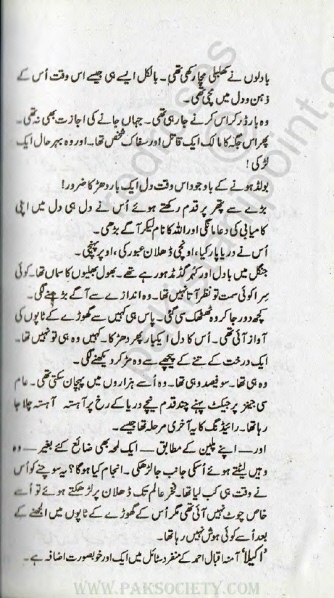 بادلوں نے کھلبلی مچا رکھی تھی۔ بالکل ایسے ہی جیسے اس وقت اُس کے
ذہن و دل میں مچی تھی۔
وہ بارڈر کراس کرنے جا رہی تھی۔ جہاں جانے کی اجازت بھی نہ تھی۔
پھر اس جگہ کا مالک ایک قاتل اور سفاک شخص تھا۔ اور وہ بہرحال ایک
لڑکی!
بولڈ ہونے کے باوجود اس وقت دل ایک بار دھڑکا ضرور!
بڑے سے پتھر پر قدم رکھتے ہوئے اُس نے دل ہی دل میں اپنی
کامیابی کی دعا مانگی اور اللہ کا نام لیکر آگے بڑھی۔
اُس نے دریا پار کیا، اونچی ڈھلان عبور کی، اوپر پہنچی۔
جنگل میں بادل اور کہر گڈمڈ ہو رہے تھے۔ بھول بھلیوں کا سماں تھا۔ کوئی
سرا کوئی سمت تو نظر آتا نہیں تھا۔ وہ اندازے سے آگے بڑھنے لگی۔
کچھ دور جا کر وہ ٹھٹھک سی گئی۔ پاس ہی کہیں سے گھوڑے کے ٹاپوں کی
آواز آئی تھی۔ اُس کا دل ایکبار پھر دھڑکا۔ کہیں وہ ہی تو نہیں تھا۔
ایک درخت کے تنے کے پیچھے سے وہ مڑ کر دیکھنے لگی۔
وہ ہی تھا۔ سو فیصد وہی تھا۔ وہ اُسے ہزاروں میں پہچان سکتی تھی۔ عام
سی جینز پر جیکٹ پہنے چند قدم نیچے دریا کے رخ پر آہستہ آہستہ چلا جا
رہا تھا۔ رائیڈنگ کا یہ آخری مرحلہ تھا جیسے۔
اور— اپنے پلین کے مطابق— ایک لمحہ بھی ضائع کئے بغیر— وہ
وہیں لیٹتے ہوئے اُسکی جانب جا لڑھکی۔ انجام کیا ہوگا؟ یہ سوچنے کو اُس
نے وقت ہی کب لیا تھا۔ فخر عالم تک ڈھلان پر لڑھکتے ہوئے تو اُسے
خاص چوٹ نہیں آئی تھی مگر اُس کے گھوڑے کے ٹاپوں میں الجھنے کے
بعد اُسے کوئی ہوش نہیں رہا تھا۔
"اکیلا" آمنہ اقبال احمد کے منفرد سٹائل میں ایک اور خوبصورت اضافہ ہے۔
WWW.PAKSOCIETY.COM